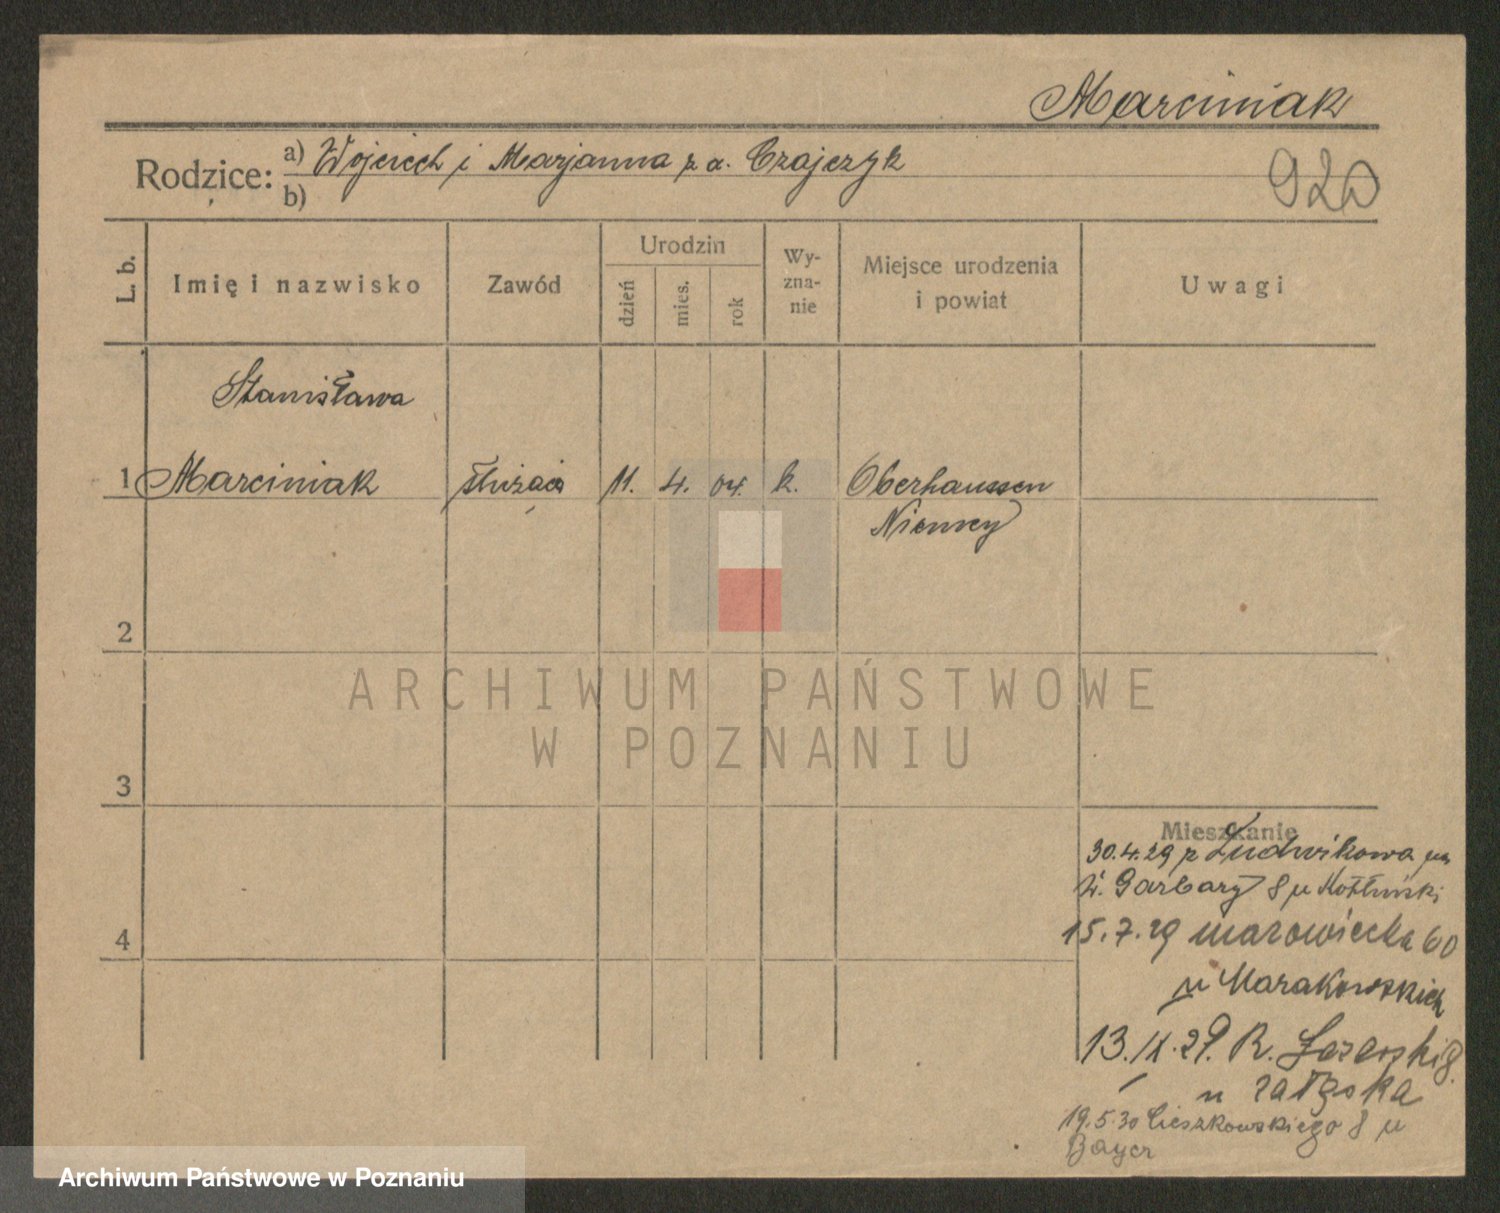 Marciniak
Rodzice: a) Wojciech i Marjanna z d. Czajczyk
b)
920
L. b.
Imię i nazwisko
Zawód
Urodzin
dzień
mies.
rok
Wy-
zna-
nie
Miejsce urodzenia
i powiat
Uwagi
Stanisława
1 Marciniak służąca 11. 4. 04. k. Oberhaussen
Niemcy
2
ARCHIWUM PAŃSTWOWE
W POZNANIU
3
Mieszkanie
30.4.29 z Ludwikowa
W. Garbary 8 u
4
15.7.29 mazowiecka 60
u
13.IX.29. R.
u
19.5.30 Cieszkowskiego 8 u
Bayer
Archiwum Państwowe w Poznaniu